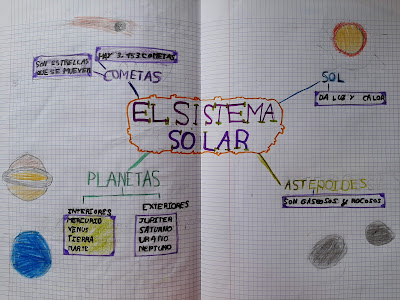 HAY 3.153 COMETAS
SON ESTRELLAS
QUE SE MUEVEN
COMETAS
SOL
DA LUZ Y CALOR
EL SISTEMA
SOLAR
PLANETAS
INTERIORES
MERCURIO
VENUS
TIERRA
MARTE
EXTERIORES
JÚPITER
SATURNO
URANO
NEPTUNO
ASTEROIDES
SON GASEOSOS Y ROCOSOS